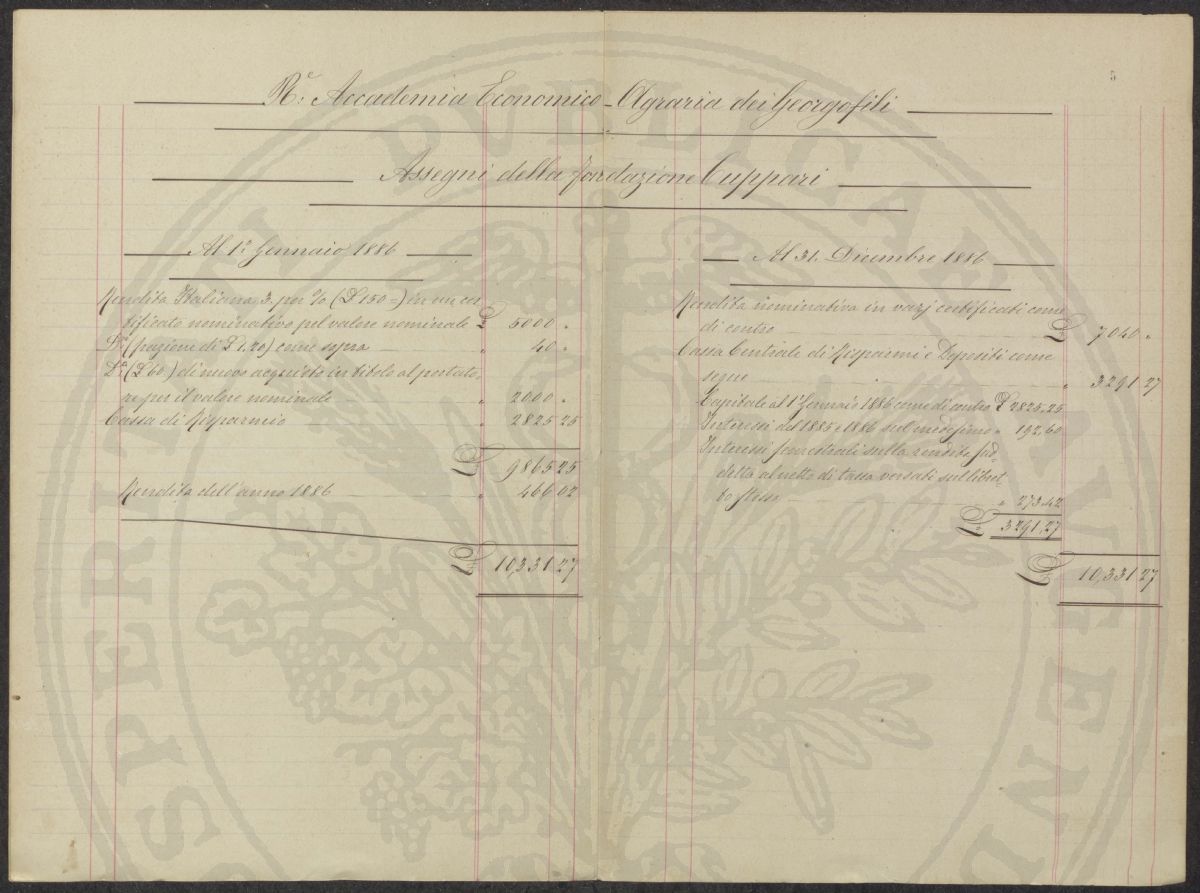 5
R.e Accademia Economico-Agraria dei Georgofili
Assegni della fondazione Cuppari
Al 1° Gennaio 1886
Rendita Italiana 3. per % (£ 150=) in un cer
tificato nominativo pel valore nominale £ 5000 "
D.a (frazione di £ 1,20) come sopra " 40 "
D.a (£ 60) di nuovo acquisto in titolo al portato-
re per il valore nominale " 2000 "
Cassa di Risparmio " 2825 25
£ 9865 25
Rendita dell'anno 1886 " 466 02
£ 10,331 27
Al 31. Dicembre 1886
Rendita nominativa in varj certificati come
di contro £ 7040 "
Cassa Centrale di Risparmi e Depositi come
segue " 3291 27
Capitale al 1° Gennaio 1886 come di contro £ 2825,25
Interessi del 1885 e 1886 sul medesimo " 192,60
Interessi semestrali sulla rendita sud
detta al netto di tassa versati sul libret
to stesso " 273.42
£ 3291,27
£ 10,331 27
PUBLICAE